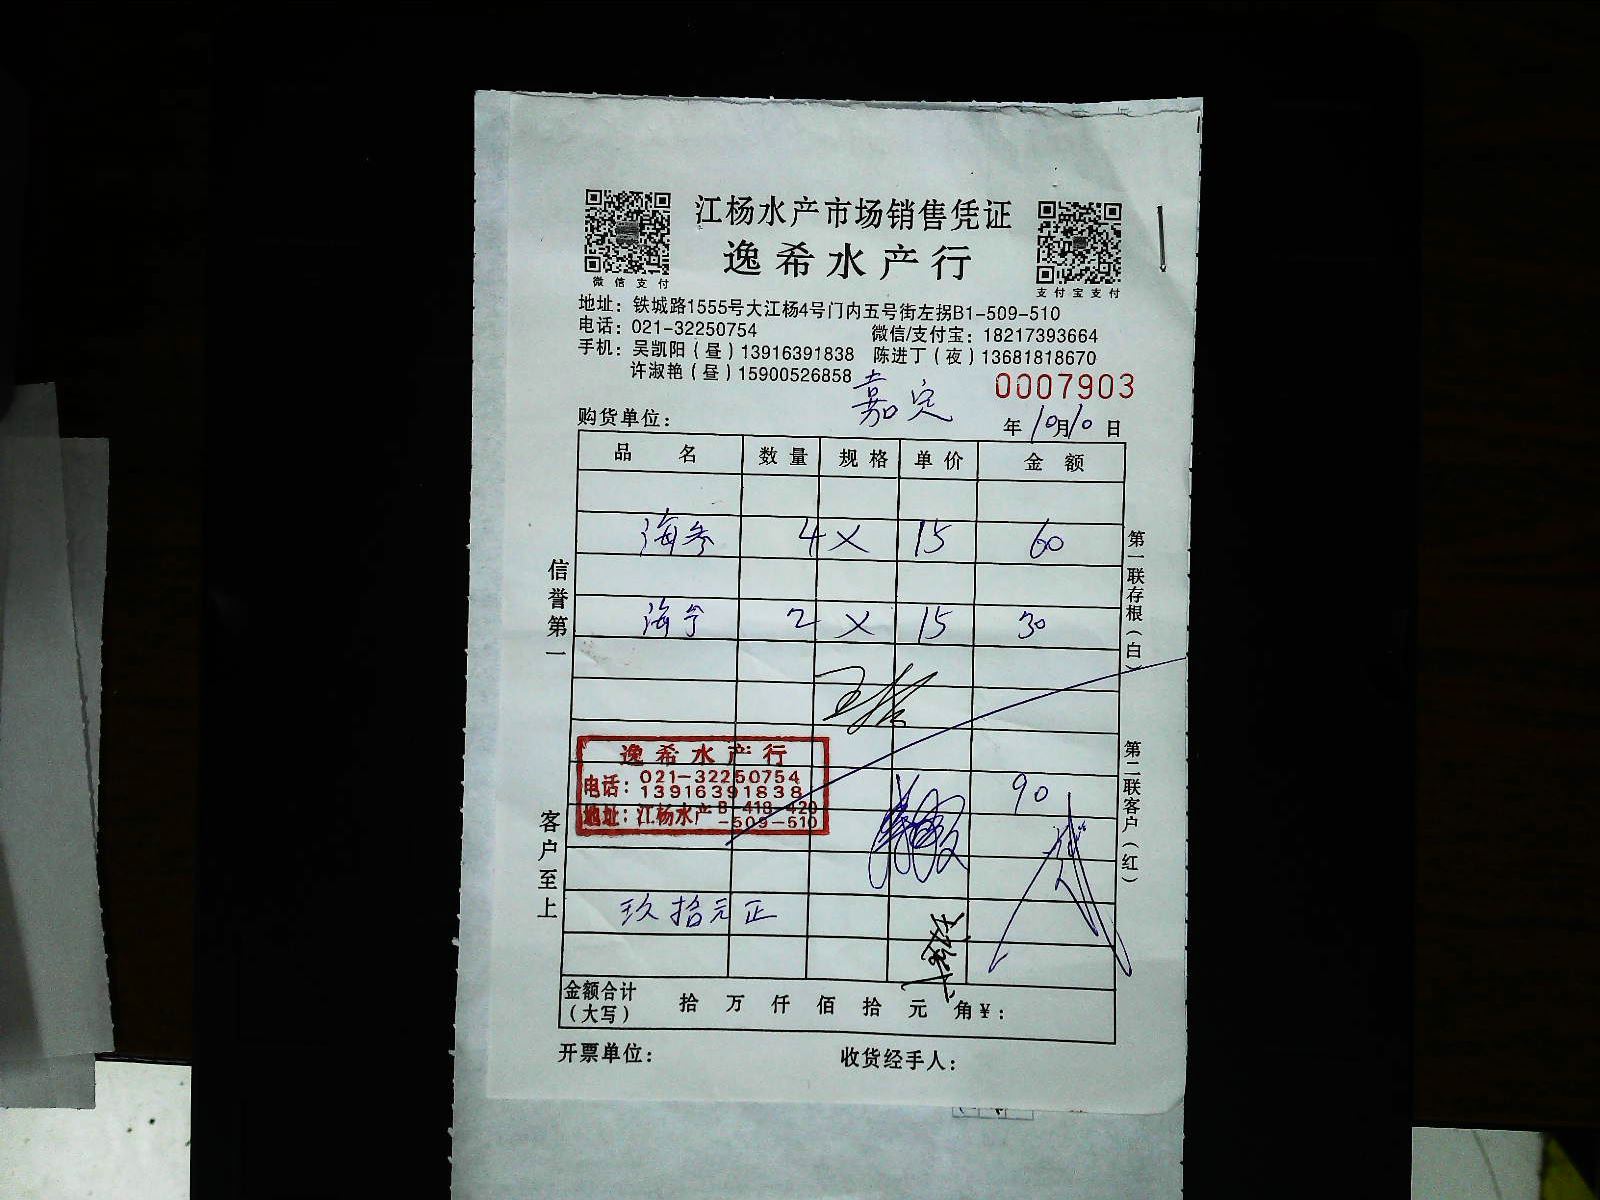 江杨水产市场销售凭证
逸希水产行
微信支付
支付宝支付
地址：铁城路1555号大江杨4号门内五号街左拐B1-509-510
电话：021-32250754 微信/支付宝：18217393664
手机：吴凯阳（昼）13916391838 陈进丁（夜）13681818670
许淑艳（昼）15900526858
0007903
购货单位： 嘉定 年10月10日
品名 数量 规格 单价 金额
海参 4 X 15 60
2 X 15 30
逸希水产行
电话：021-32250754
13916391838
地址：江杨水产B-418-420
-509-510
90
玖拾元正
金额合计（大写） 拾 万 仟 佰 拾 元 角 ¥：
开票单位： 收货经手人：
信誉第一
客户至上
第一联存根（白）
第二联客户（红）